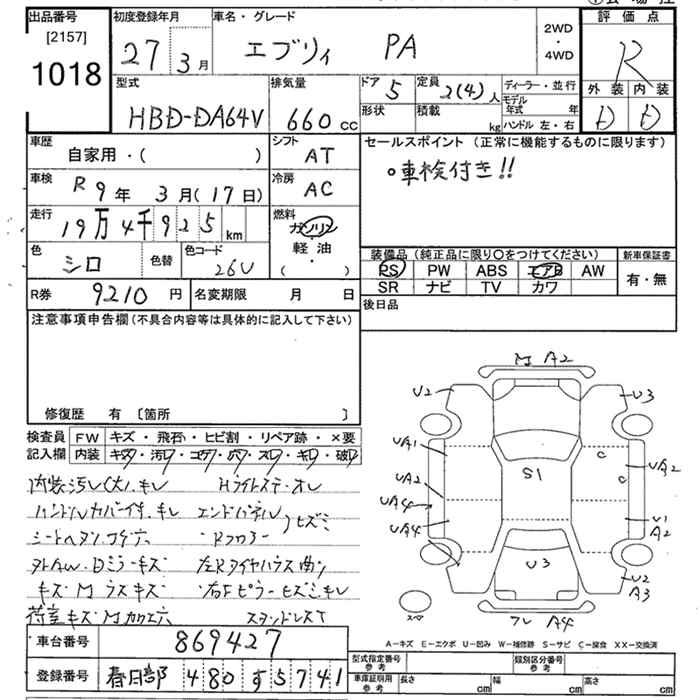 出品番号 初度登録年月 車名・グレード 評価点
[2157]
1018
27 3月 エブリィ PA
2WD
・
4WD
R
型式 排気量 ドア 5 定員 2(4)人 ディーラー・並行 外装 内装
HBD-DA64V 660cc 形状 積載 kg モデル年式 年
ハンドル 左・右 D D
車歴 シフト セールスポイント(正常に機能するものに限ります)
自家用・( ) AT
。車検付き!!
車検 冷房
R9年3月(17日) AC
走行 燃料
19万4千925km ガソリン
軽・油
( )
色 シロ 色替 色コード 26U
装備品(純正品に限り〇をつけてください) 新車保証書
PS PW ABS エアB AW 有・無
SR ナビ TV カワ
R券 9210円 名変期限 月 日
後日品
注意事項申告欄(不具合内容等は具体的に記入して下さい)
修復歴 有 〔箇所 〕
検査員 FW キズ・飛石・ヒビ割・リペア跡・×要
記入欄 内装 キズ・汚レ・コゲ・穴・スレ・キレ・破レ
内装汚レ(大).キレ Hライトステ・オレ
ハンドルカバー付.キレ エンドパネル
シートヘタリ.コゲ穴 ・Rフロアー )ヒズミ
外AW.Dミラーキズ 左Rタイヤハウス曲リ
キズ・Mラスキズ ・右Fピラーヒズミ.キレ
荷室キズ.Mカクエ穴 スタンドレスT
M A2
U2 U3
UA1 C UA2
UA2 S1 C
UA4 U1
UA4 A2
U3 U2
A3
スペア フレ A4
A-キズ E-エクボ U-凹み W-補修跡 S-サビ C-腐食 XX-交換済
車台番号 869427
型式指定番号 参考 類別区分番号 参考
登録番号 春日部 480 す 5741
車庫証明用 参考 長さ cm 幅 cm 高さ cm